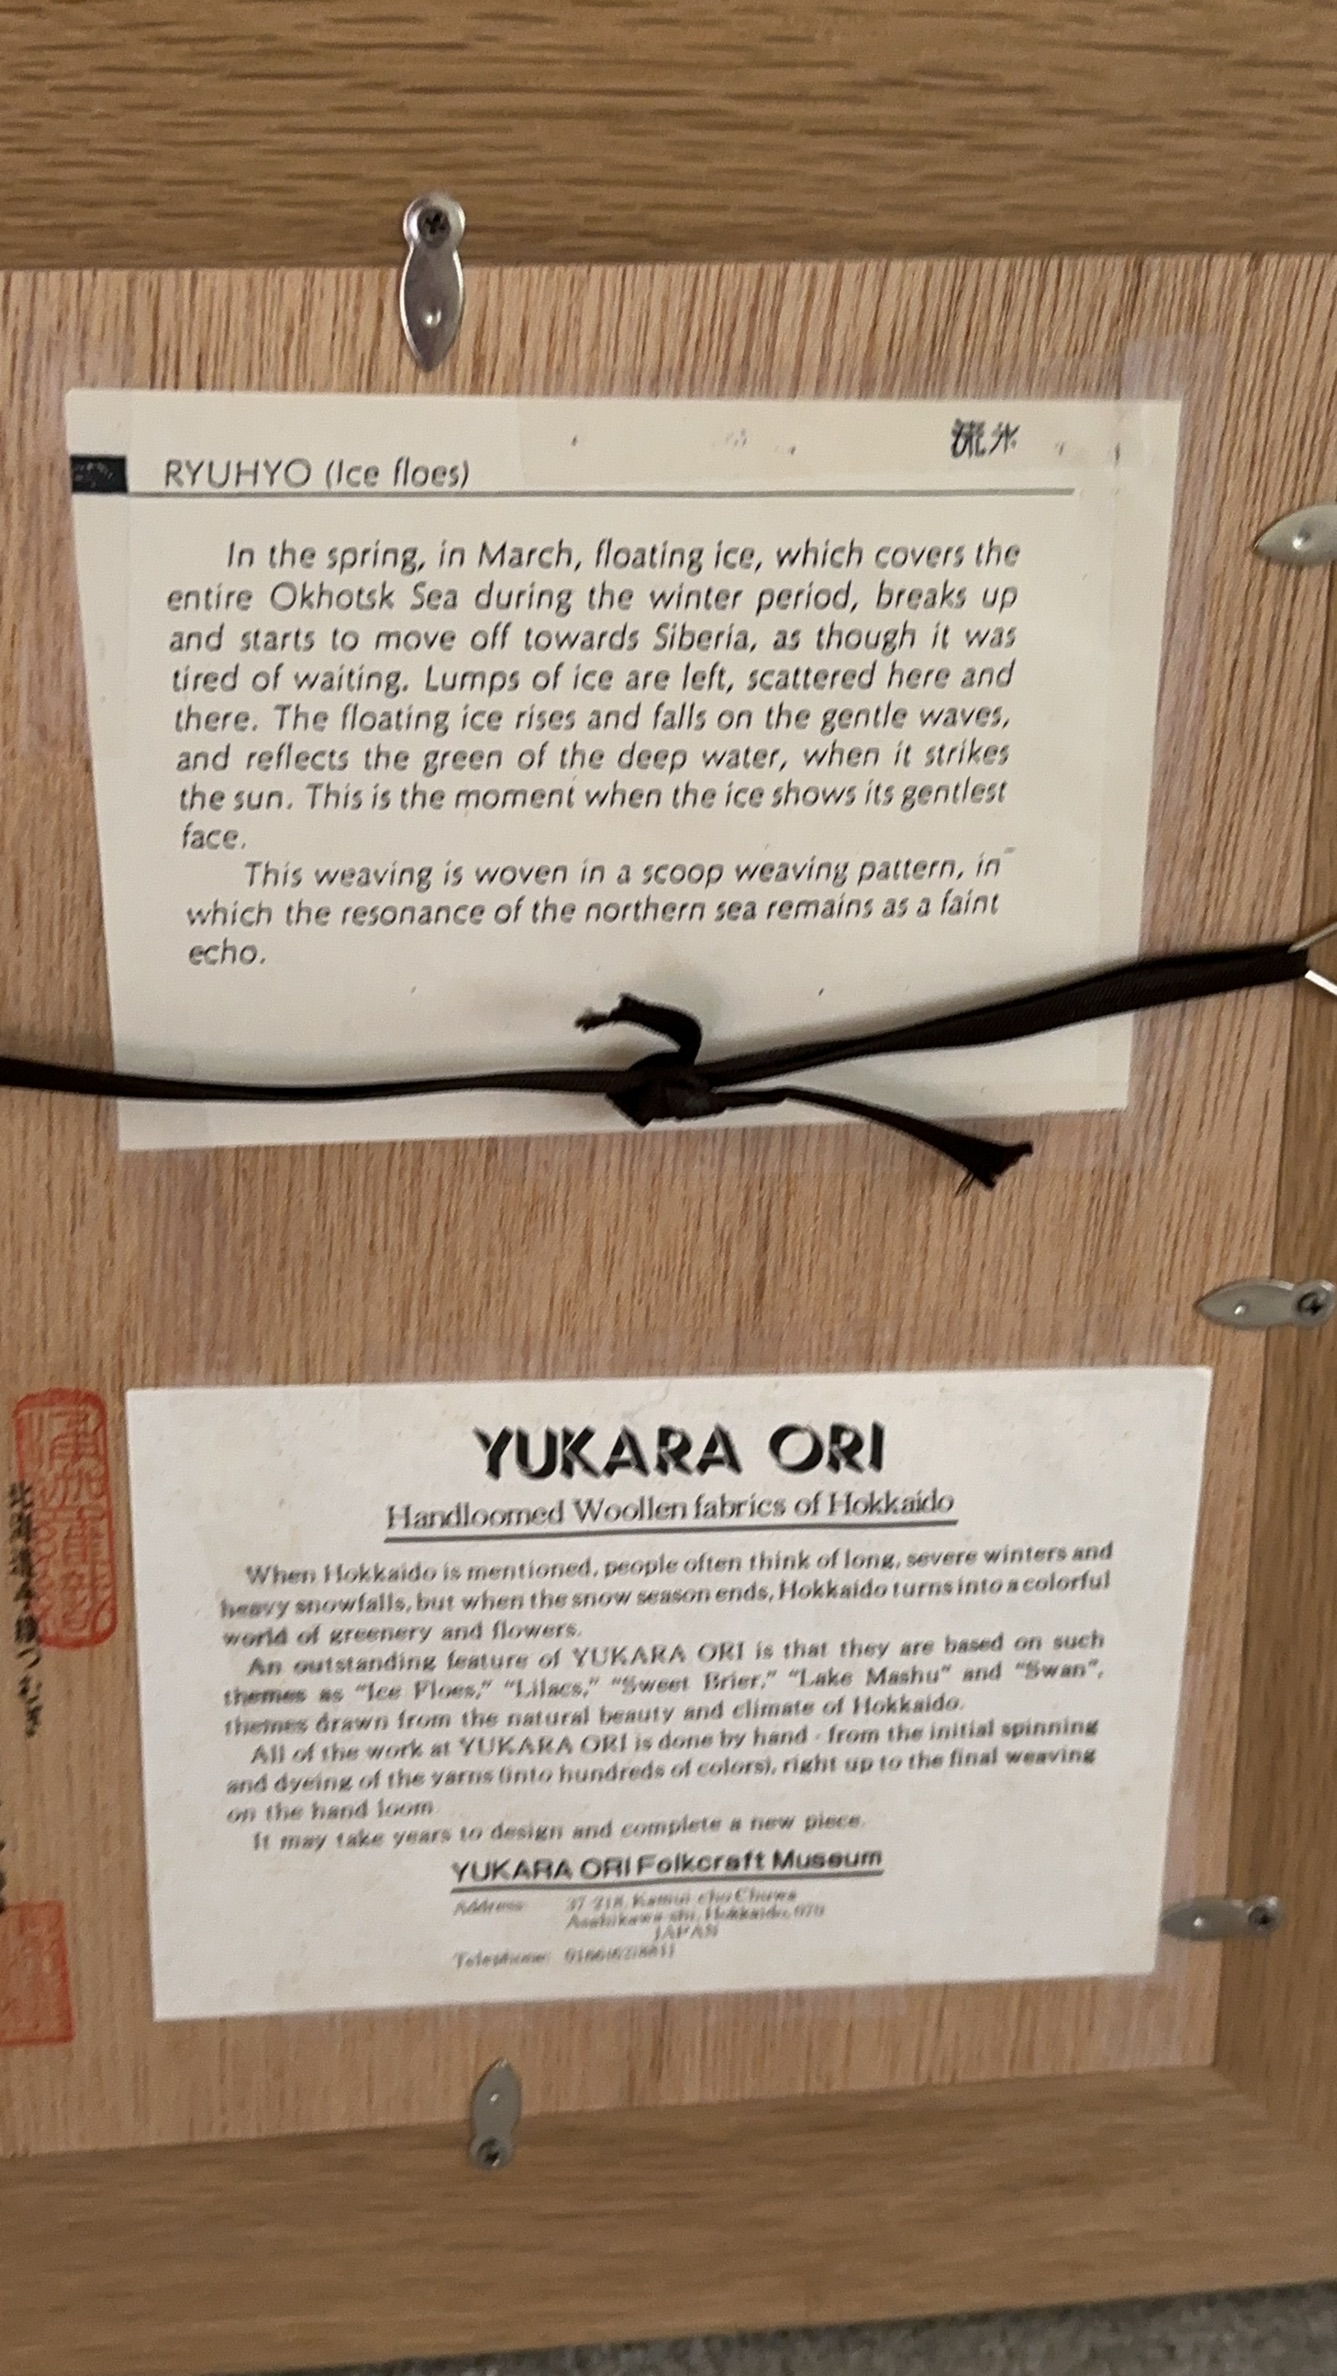 流氷
RYUHYO (Ice floes)
In the spring, in March, floating ice, which covers the
entire Okhotsk Sea during the winter period, breaks up
and starts to move off towards Siberia, as though it was
tired of waiting. Lumps of ice are left, scattered here and
there. The floating ice rises and falls on the gentle waves,
and reflects the green of the deep water, when it strikes
the sun. This is the moment when the ice shows its gentlest
face.
This weaving is woven in a scoop weaving pattern, in
which the resonance of the northern sea remains as a faint
echo.
YUKARA ORI
Handloomed Woollen fabrics of Hokkaido
When Hokkaido is mentioned, people often think of long, severe winters and
heavy snowfalls, but when the snow season ends, Hokkaido turns into a colorful
world of greenery and flowers.
An outstanding feature of YUKARA ORI is that they are based on such
themes as "Ice Floes," "Lilacs," "Sweet Brier," "Lake Mashu" and "Swan",
themes drawn from the natural beauty and climate of Hokkaido.
All of the work at YUKARA ORI is done by hand - from the initial spinning
and dyeing of the yarns (into hundreds of colors), right up to the final weaving
on the hand loom.
It may take years to design and complete a new piece.
YUKARA ORI Folkcraft Museum
Address:
Asahikawa-shi, Hokkaido, 070
JAPAN
Telephone: